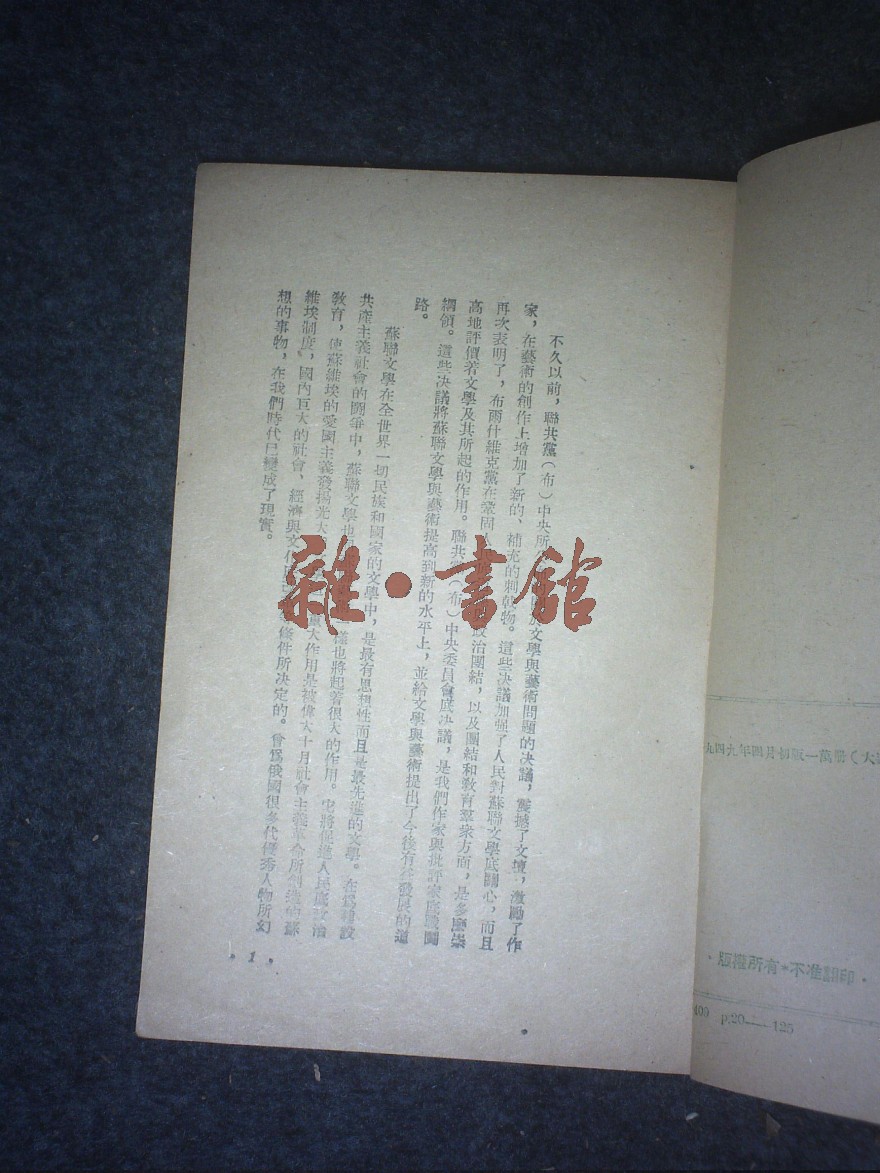 不久以前，聯共黨（布）中央所 文學與藝術問題的决議，震撼了文壇，激勵了作
家，在藝術的創作上增加了新的、補充的刺戟物。這些决議加强了人民對蘇聯文學底關心，而且
再次表明了，布爾什維克黨在鞏固 政治團結，以及團結和敎育羣衆方面，是多麽崇
高地評價着文學及其所起的作用。聯共黨（布）中央委員會底决議，是我們作家與批評家底戰鬭
綱領。這些决議將蘇聯文學與藝術提高到新的水平上，並給文學與藝術提出了今後有 發展的道
路。
蘇聯文學在全世界一切民族和國家的文學中，是最有思想性而且是最先進的文學。在爲建設
共產主義社會的鬭爭中，蘇聯文學也 樣也將起着很大的作用。它將促進人民底政治
敎育，使蘇維埃的愛國主義發揚光大 重大作用是被偉大十月社會主義革命所創造的蘇
維埃制度，國內巨大的社會、經濟與文化 條件所决定的。曾爲俄國很多代優秀人物所幻
想的事物，在我們時代已變成了現實。
• 1 •
雜•書館
九四九年四月初版一萬册（大
•版權所有*不准翻印•
p.20—125